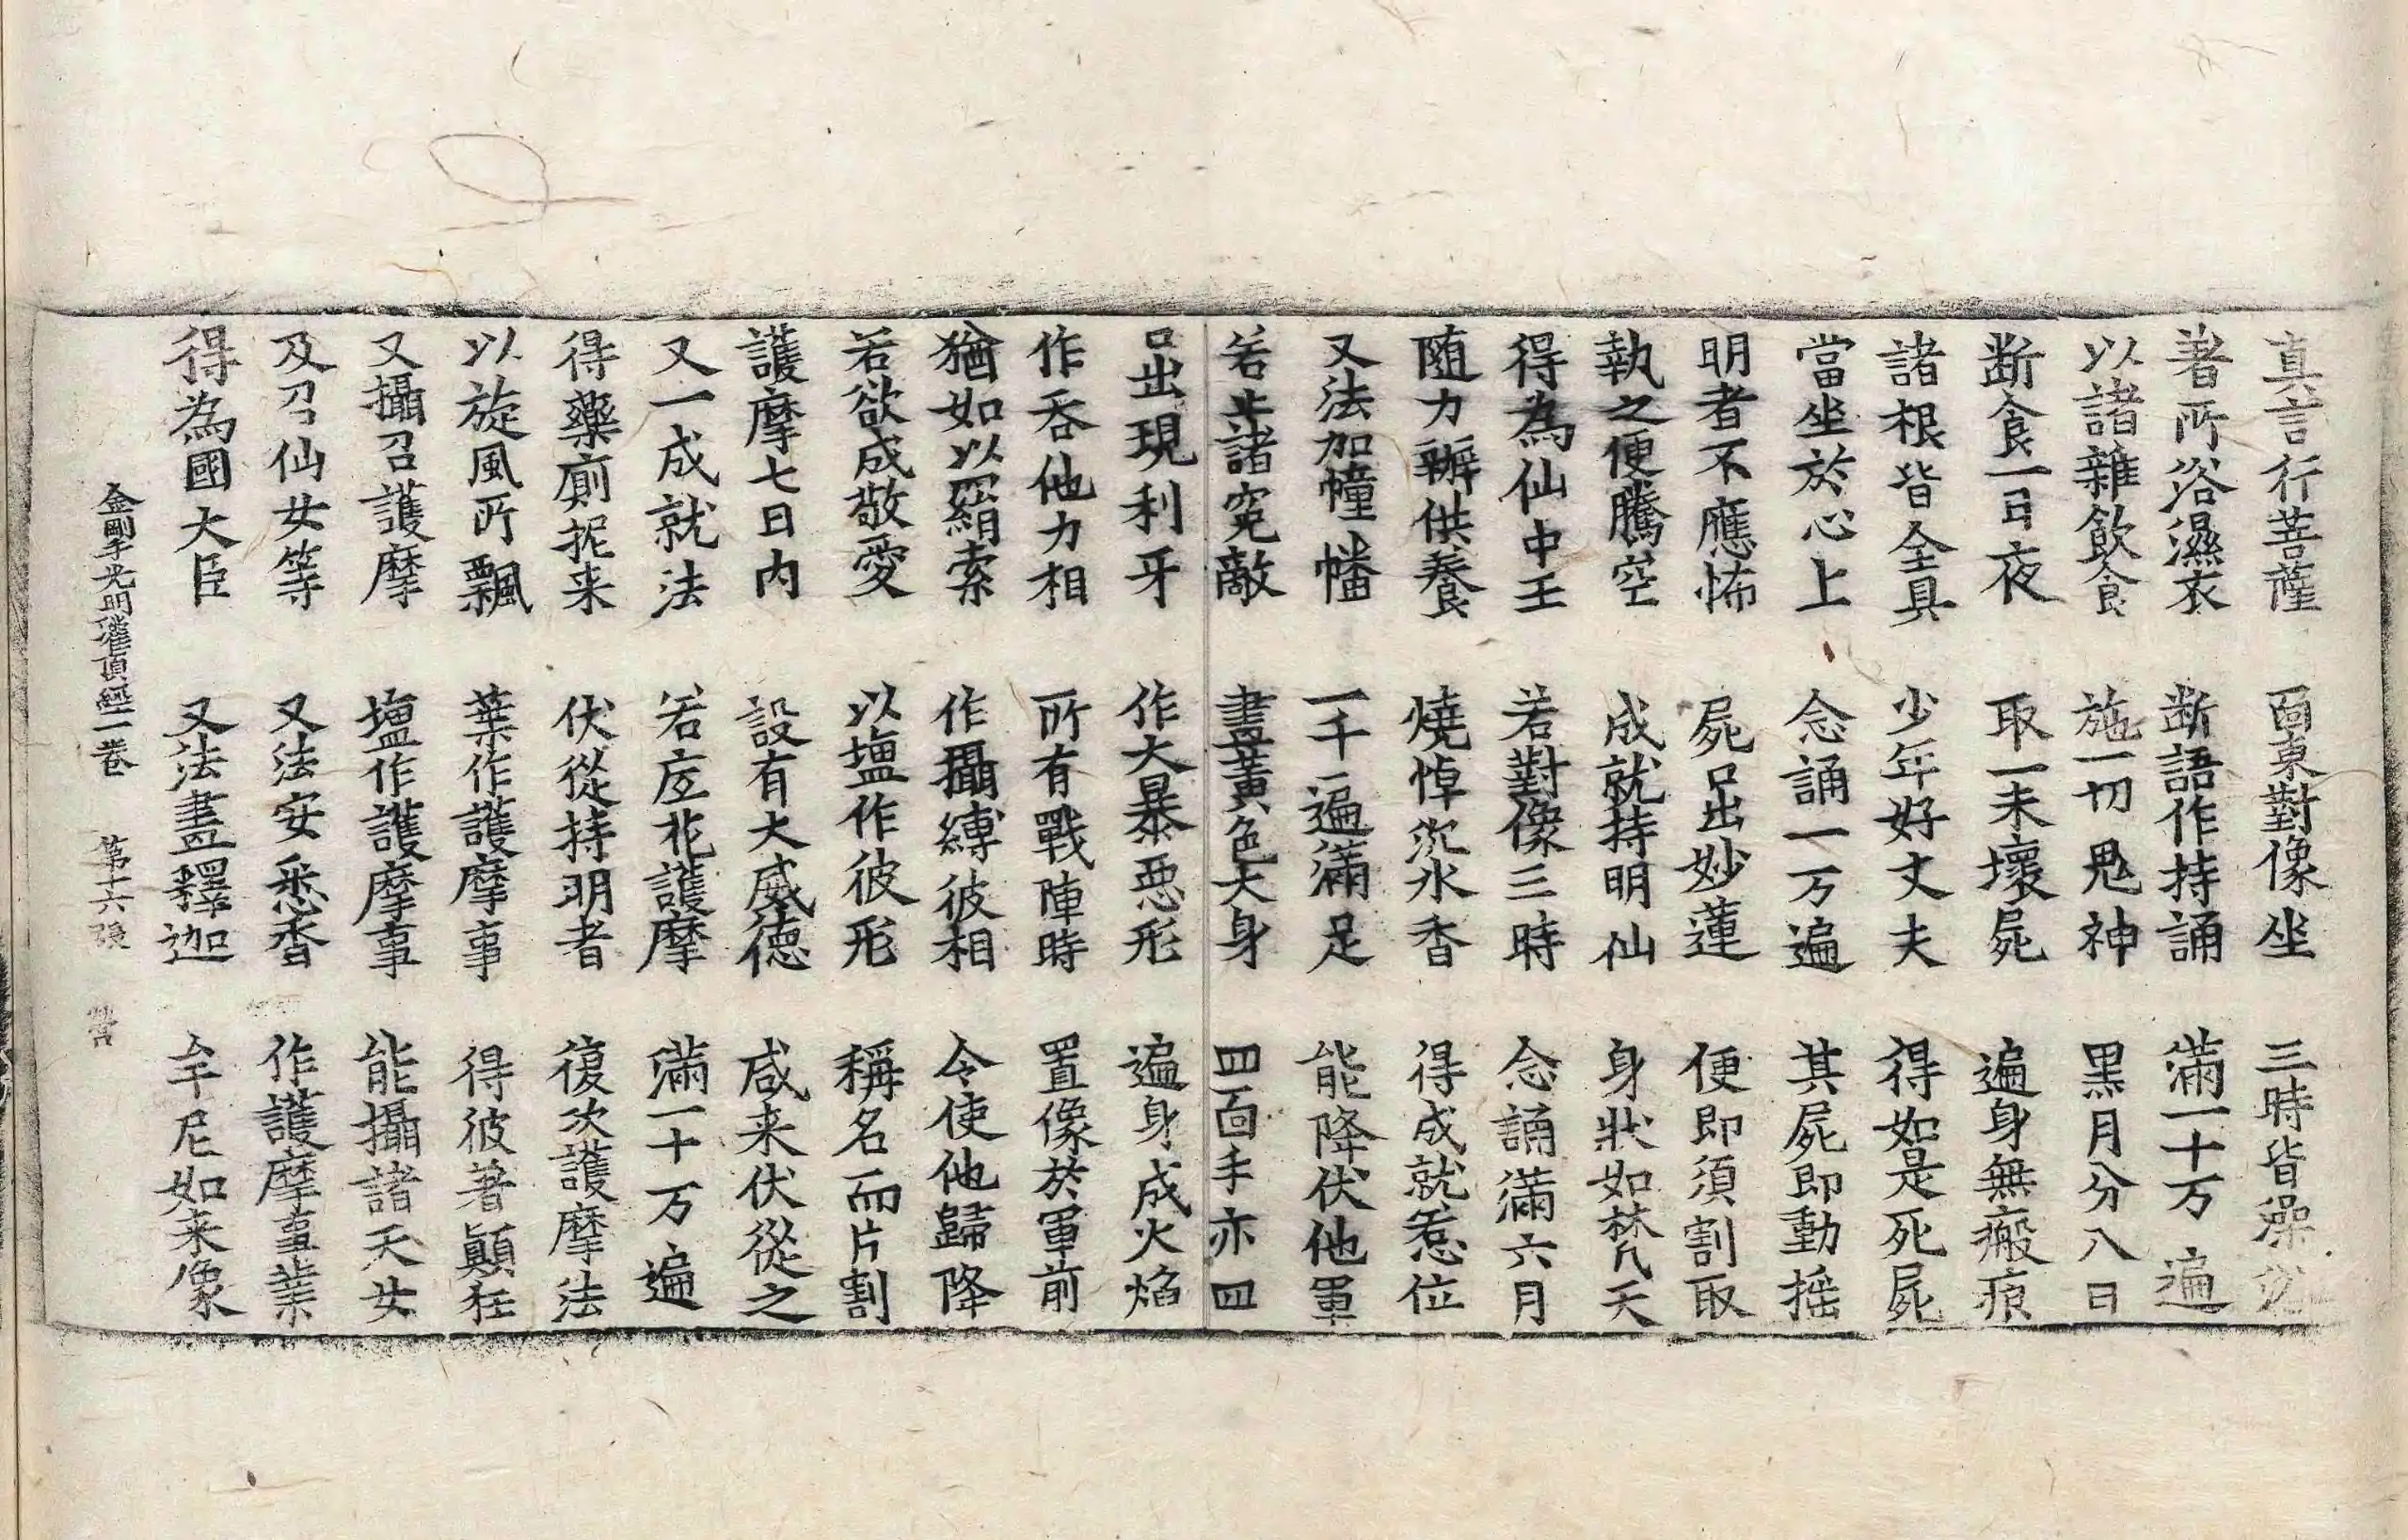 真言行菩薩　面東對像坐　三時皆澡浴
著所浴濕衣　断語作持誦　滿一十万遍
以諸雜飲食　施一切鬼神　黑月分八日
断食一日夜　取一未壞屍　遍身無瘢痕
諸根皆全具　少年好丈夫　得如是死屍
當坐於心上　念誦一万遍　其屍即動揺
明者不應怖　屍口出妙蓮　便即須割取
執之便騰空　成就持明仙　身狀如梵天
得為仙中王　若對像三時　念誦滿六月
随力辦供養　燒惇沉水香　得成就惹位
又法加幢幡　一千遍滿足　能降伏他軍
若止諸寃敵　畫黃色大身　四面手亦四
口出現利牙　作大暴惡形　遍身成火焰
作吞他力相　所有戰陣時　置像於軍前
猶如以羂索　作攝縛彼相　令使他歸降
若欲成敬愛　以塩作彼形　稱名而片割
護摩七日內　設有大威徳　咸来伏從之
又一成就法　若应花護摩　滿一十万遍
得藥廁抳来　伏從持明者　復次護摩法
以旋風所飄　葉作護摩事　得彼著顚狂
又攝召護摩　塩作護摩事　能攝諸天女
及召仙女等　又法安悉香　作護摩事業
得為國大臣　又法畫釋迦　牟尼如来像
金剛手光明灌頂經一卷　第十六張　營